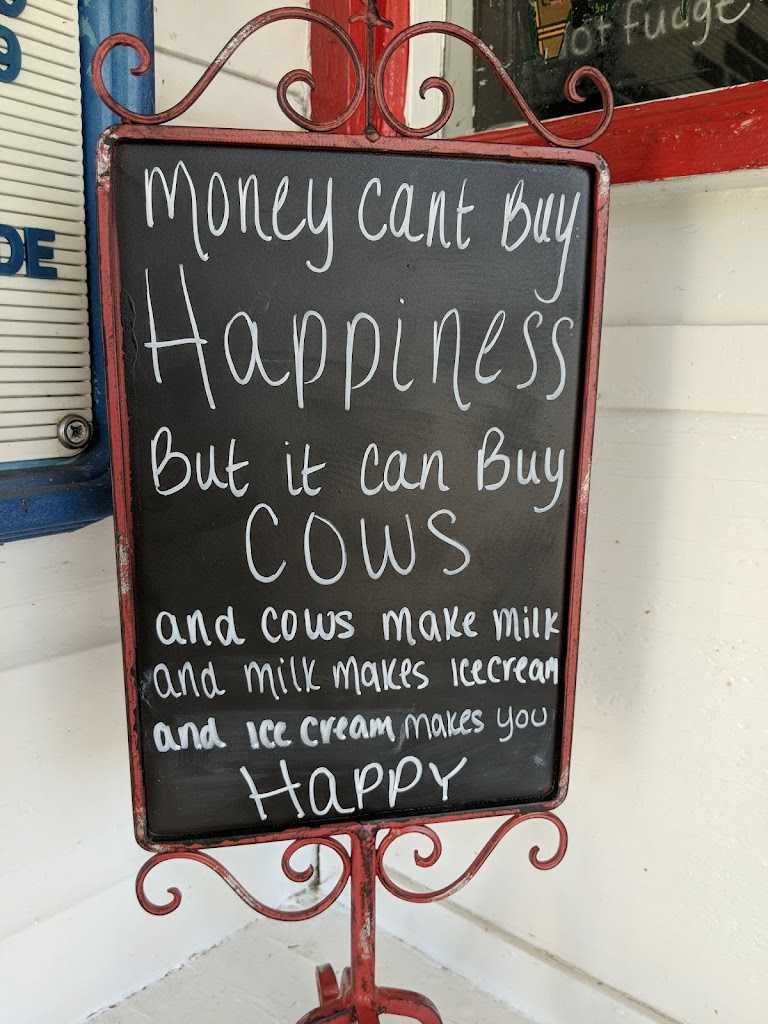 ot fudge
DE
9
Money cant Buy
Happiness
But it can Buy
COWS
and cows make milk
and milk makes icecream
and ice cream makes you
HAPPY